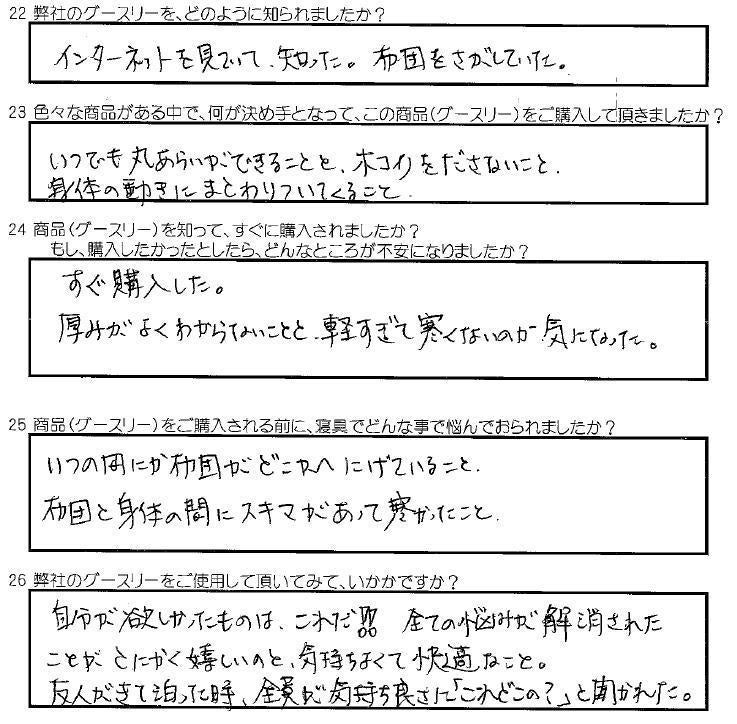 22 弊社のグースリーを、どのように知られましたか？
インターネットを見ていて、知った。布団をさがしていた。
23 色々な商品がある中で、何が決め手となって、この商品（グースリー）をご購入して頂きましたか？
いつでも丸あらいができることと、ホコリをださないこと、
身体の動きにまとわりついてくること、
24 商品（グースリー）を知って、すぐに購入されましたか？
もし、購入したかったとしたら、どんなところが不安になりましたか？
すぐ購入した。
厚みがよくわからないことと、軽すぎて寒くないのか気になった。
25 商品（グースリー）をご購入される前に、寝具でどんな事で悩んでおられましたか？
いつの間にか布団がどこかへにげていること、
布団と身体の間にスキマがあって寒かったこと、
26 弊社のグースリーをご使用して頂いてみて、いかかですか？
自分が欲しかったものは、これだ!!! 全ての悩みが解消された
ことがとにかく嬉しいのと、気持ちよくて快適なこと。
友人がきて泊った時、全員が気持ち良さに「これどこの？」と聞かれた。